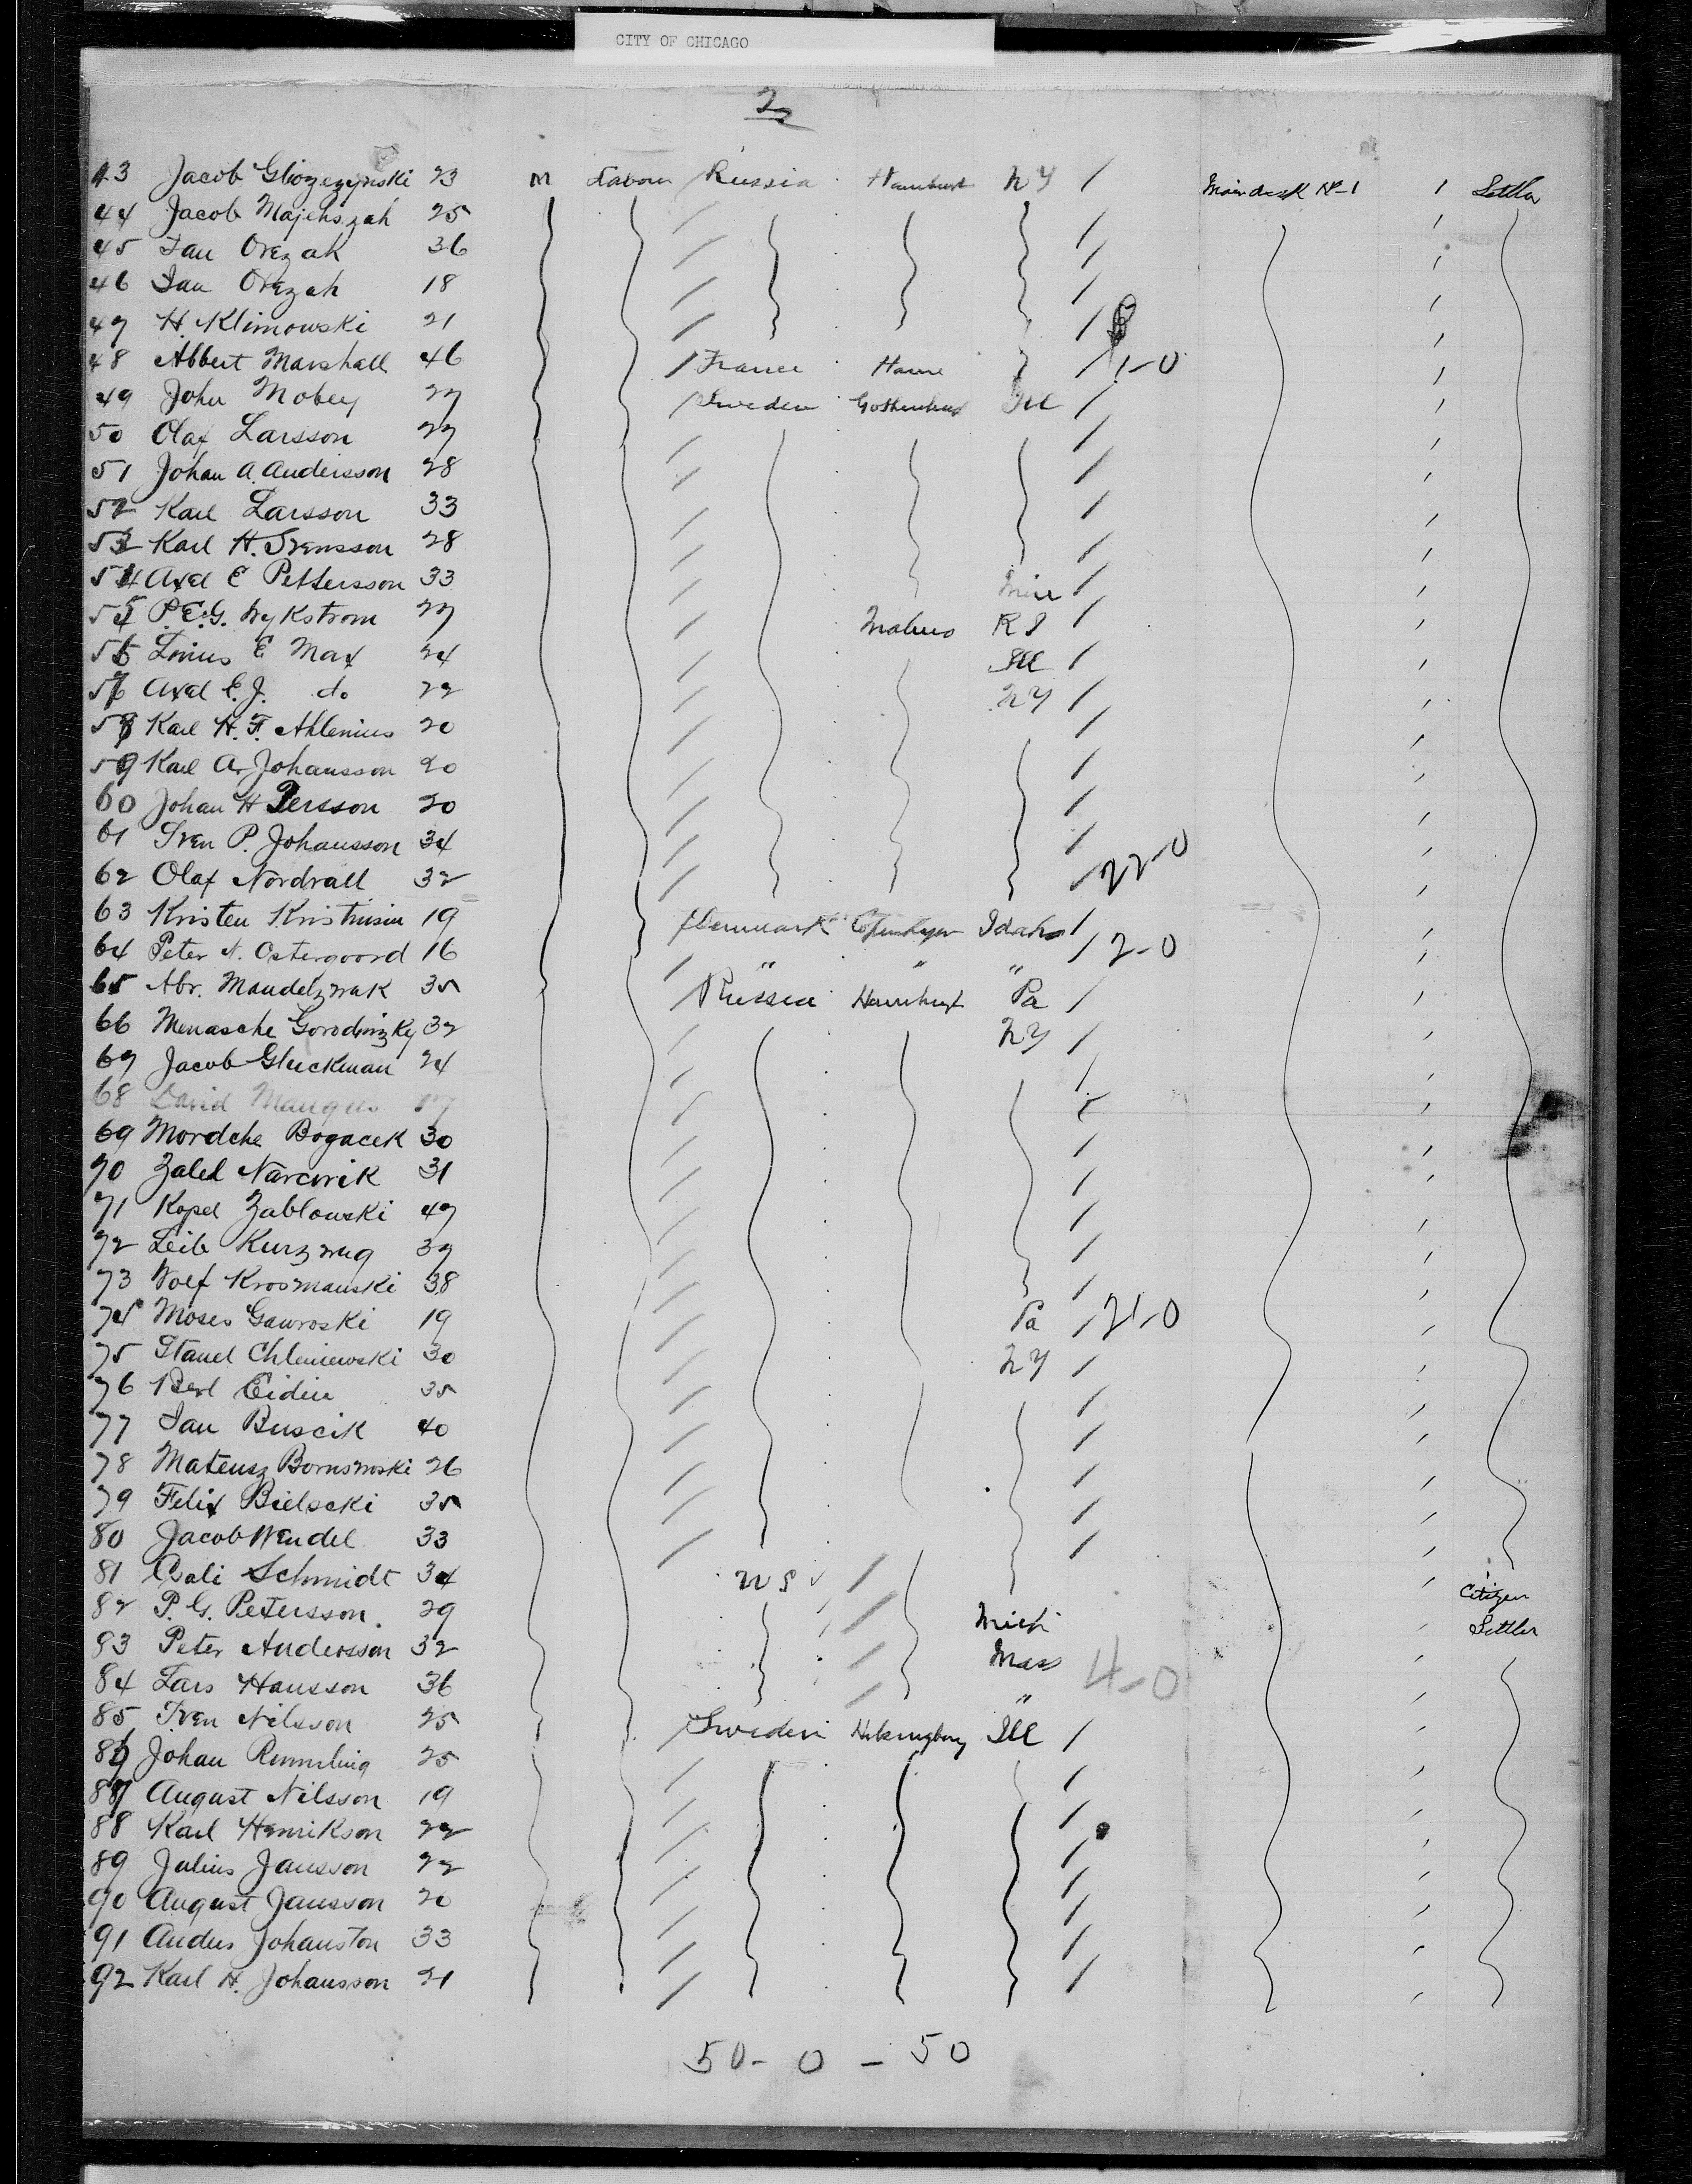 CITY OF CHICAGO
2
43 Jacob Gliozezynski 23 M Labour Russia Hamburg NY / Main deck No 1 1 Settler
44 Jacob Majehszah 25
45 Jan Orezak 36
46 Jan Orezak 18
47 H. Klimowski 21
48 Albert Marshall 46 France Havre 1-0
49 John Mobey 27 Sweden Gothenburg Ill
50 Olaf Larsson 27
51 Johan A. Andersson 28
52 Karl Larsson 33
53 Karl H. Svensson 28
54 Axel E Pettersson 33 Min
55 P.E.G. Nykstrom 27 Malmo R I
56 Linus E Max 24 Ill
57 Axel E.J. do 22 NY
58 Karl H. F. Ahlenius 20
59 Karl A. Johansson 20
60 Johan H Persson 20
61 Sven P. Johansson 34
62 Olaf Nordvall 32 22-0
63 Kristen Kristinsen 19 Denmark Copenhagen Idaho
64 Peter N. Ostergoord 16 " " " 2-0
65 Abr. Mandelzwak 35 Russia Hamburg Pa
66 Menasche Gorodinzky 32 NY
67 Jacob Gluckman 24
68 David
69 Mordche Bogacek 30
70 Zaled Narcwik 31
71 Kopel Zablowski 47
72 Leib Kurzwug 37
73 Wolf Kroszmanski 38
74 Moses Gawroski 19 Pa 21-0
75 Stanel Chleniewski 30 NY
76 Berl Eidin 35
77 Jan Buscik 40
78 Mateusz Bornszwoski 26
79 Felix Bielscki 35
80 Jacob Wendel 33
81 Cali Schmidt 34 US Citizen
82 P. G. Petersson 29 Mich Settler
83 Peter Andersson 32 Mass
84 Lars Hansson 36 " 4-0
85 Sven Nilsson 25 Sweden Helsingborg Ill
86 Johan Rumling 25
87 August Nilsson 19
88 Karl Henrikson 22
89 Julius Jansson 22
90 August Jansson 20
91 Andus Johanston 33
92 Karl H. Johansson 21
50 - 0 - 50